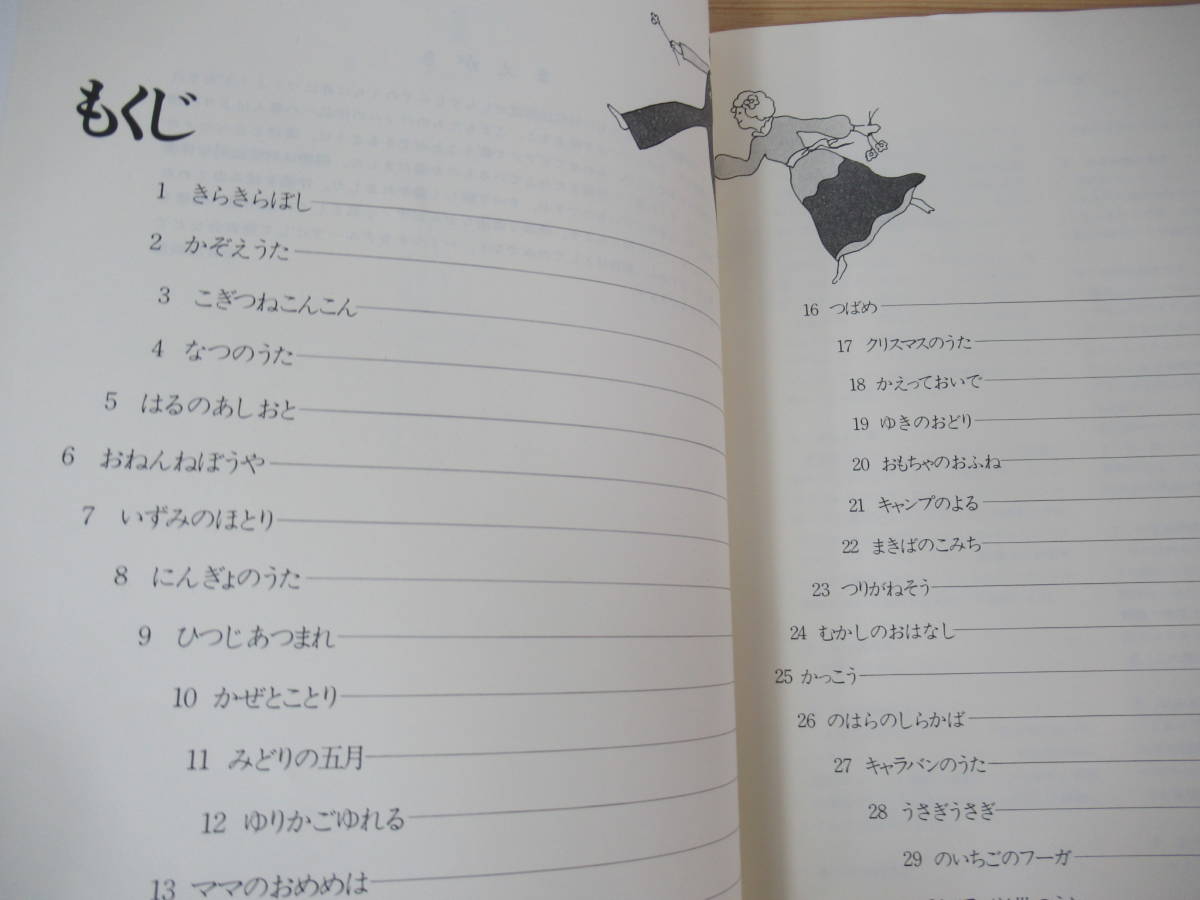 もくじ
1 きらきらぼし
2 かぞえうた
3 こぎつねこんこん
4 なつのうた
5 はるのあしおと
6 おねんねぼうや
7 いずみのほとり
8 にんぎょのうた
9 ひつじあつまれ
10 かぜとことり
11 みどりの五月
12 ゆりかごゆれる
13 ママのおめめは
16 つばめ
17 クリスマスのうた
18 かえっておいで
19 ゆきのおどり
20 おもちゃのおふね
21 キャンプのよる
22 まきばのこみち
23 つりがねそう
24 むかしのおはなし
25 かっこう
26 のはらのしらかば
27 キャラバンのうた
28 うさぎうさぎ
29 のいちごのフーガ